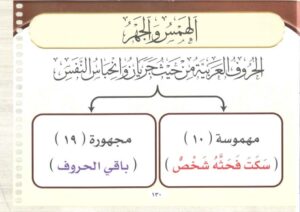 الهَمْسُ وَالجَهْرُ
الحُرُوفُ العَرَبِيَّةُ مِنْ حَيْثُ جَرَيَانُ وَانْحِبَاسُ النَّفَسِ
مهموسة ( ١٠ )
( سَكَتَ فَحَثَّهُ شَخْصٌ )
مجهورة ( ١٩ )
( باقي الحروف )
١٣٠